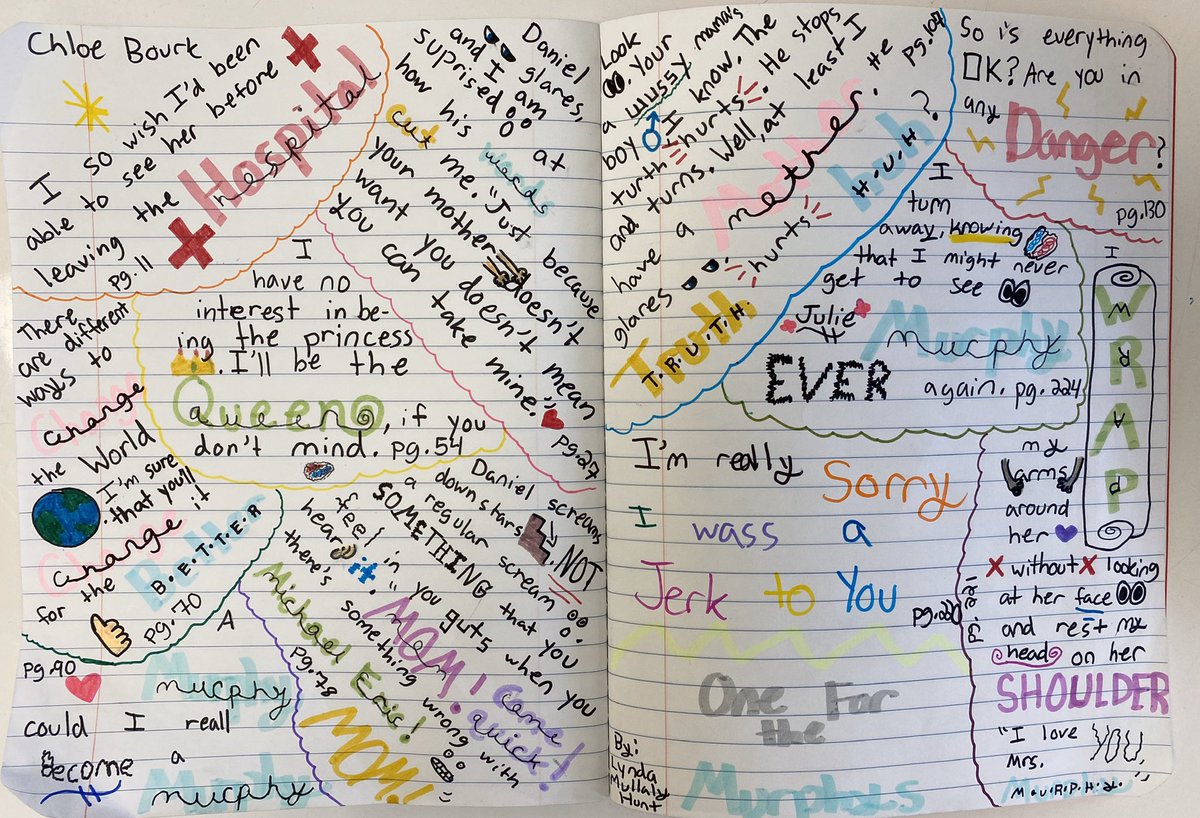 Chloe Bourk
I so wish I'd been
able to see her before
leaving the Hospital
hospital
pg. 11
Daniel
and glares,
suprised I am
how his at
words
cut me. "Just because
your mother doesn't
want you doesn't mean
you can take mine."
pg. 27
There
are different
ways to
Change
change
the World
I'm sure
that you'll
Change it
change
for the Better
B.E.T.T.E.R
pg. 70
I
have no
interest in be-
ing the princess
. I'll be the
Queen
queen, if you
don't mind. pg. 54
Daniel screams
down stars. NOT
a regular scream
SOMETHING that you
feel in you guts when you
hear it. "MOM!
Mom
there's come quick!
something wrong with
Michael Eric!
MOM!
pg. 78
pg. 90
A
Murphy
murphy
could I reall
become a
Murphy
murphy
Look
. Your mama's
a wussy
boy I know. The
turth hurts. He stops
and turns. Well, at least I
have a Mother
mother. He
glares
Truth hurts
T.R.U.T.H.
truth
H.U.H?
pg. 104
So is everything
OK? Are you in
any Danger?
pg. 130
I
turn
away, knowing
that I might never
get to see
Julie Murphy
murphy
EVER again. pg. 224
I'm really Sorry
I wass a
Jerk to You
pg. 220
I
WRAP
W R A P
my
arms
around
her
without looking
at her face
and rest my
head on her
SHOULDER
"I love YOU,
Mrs.
Murphy
M.U.R.P.H.Y."
One For
the
Murphys
By:
Lynda
Mullaly
Hunt